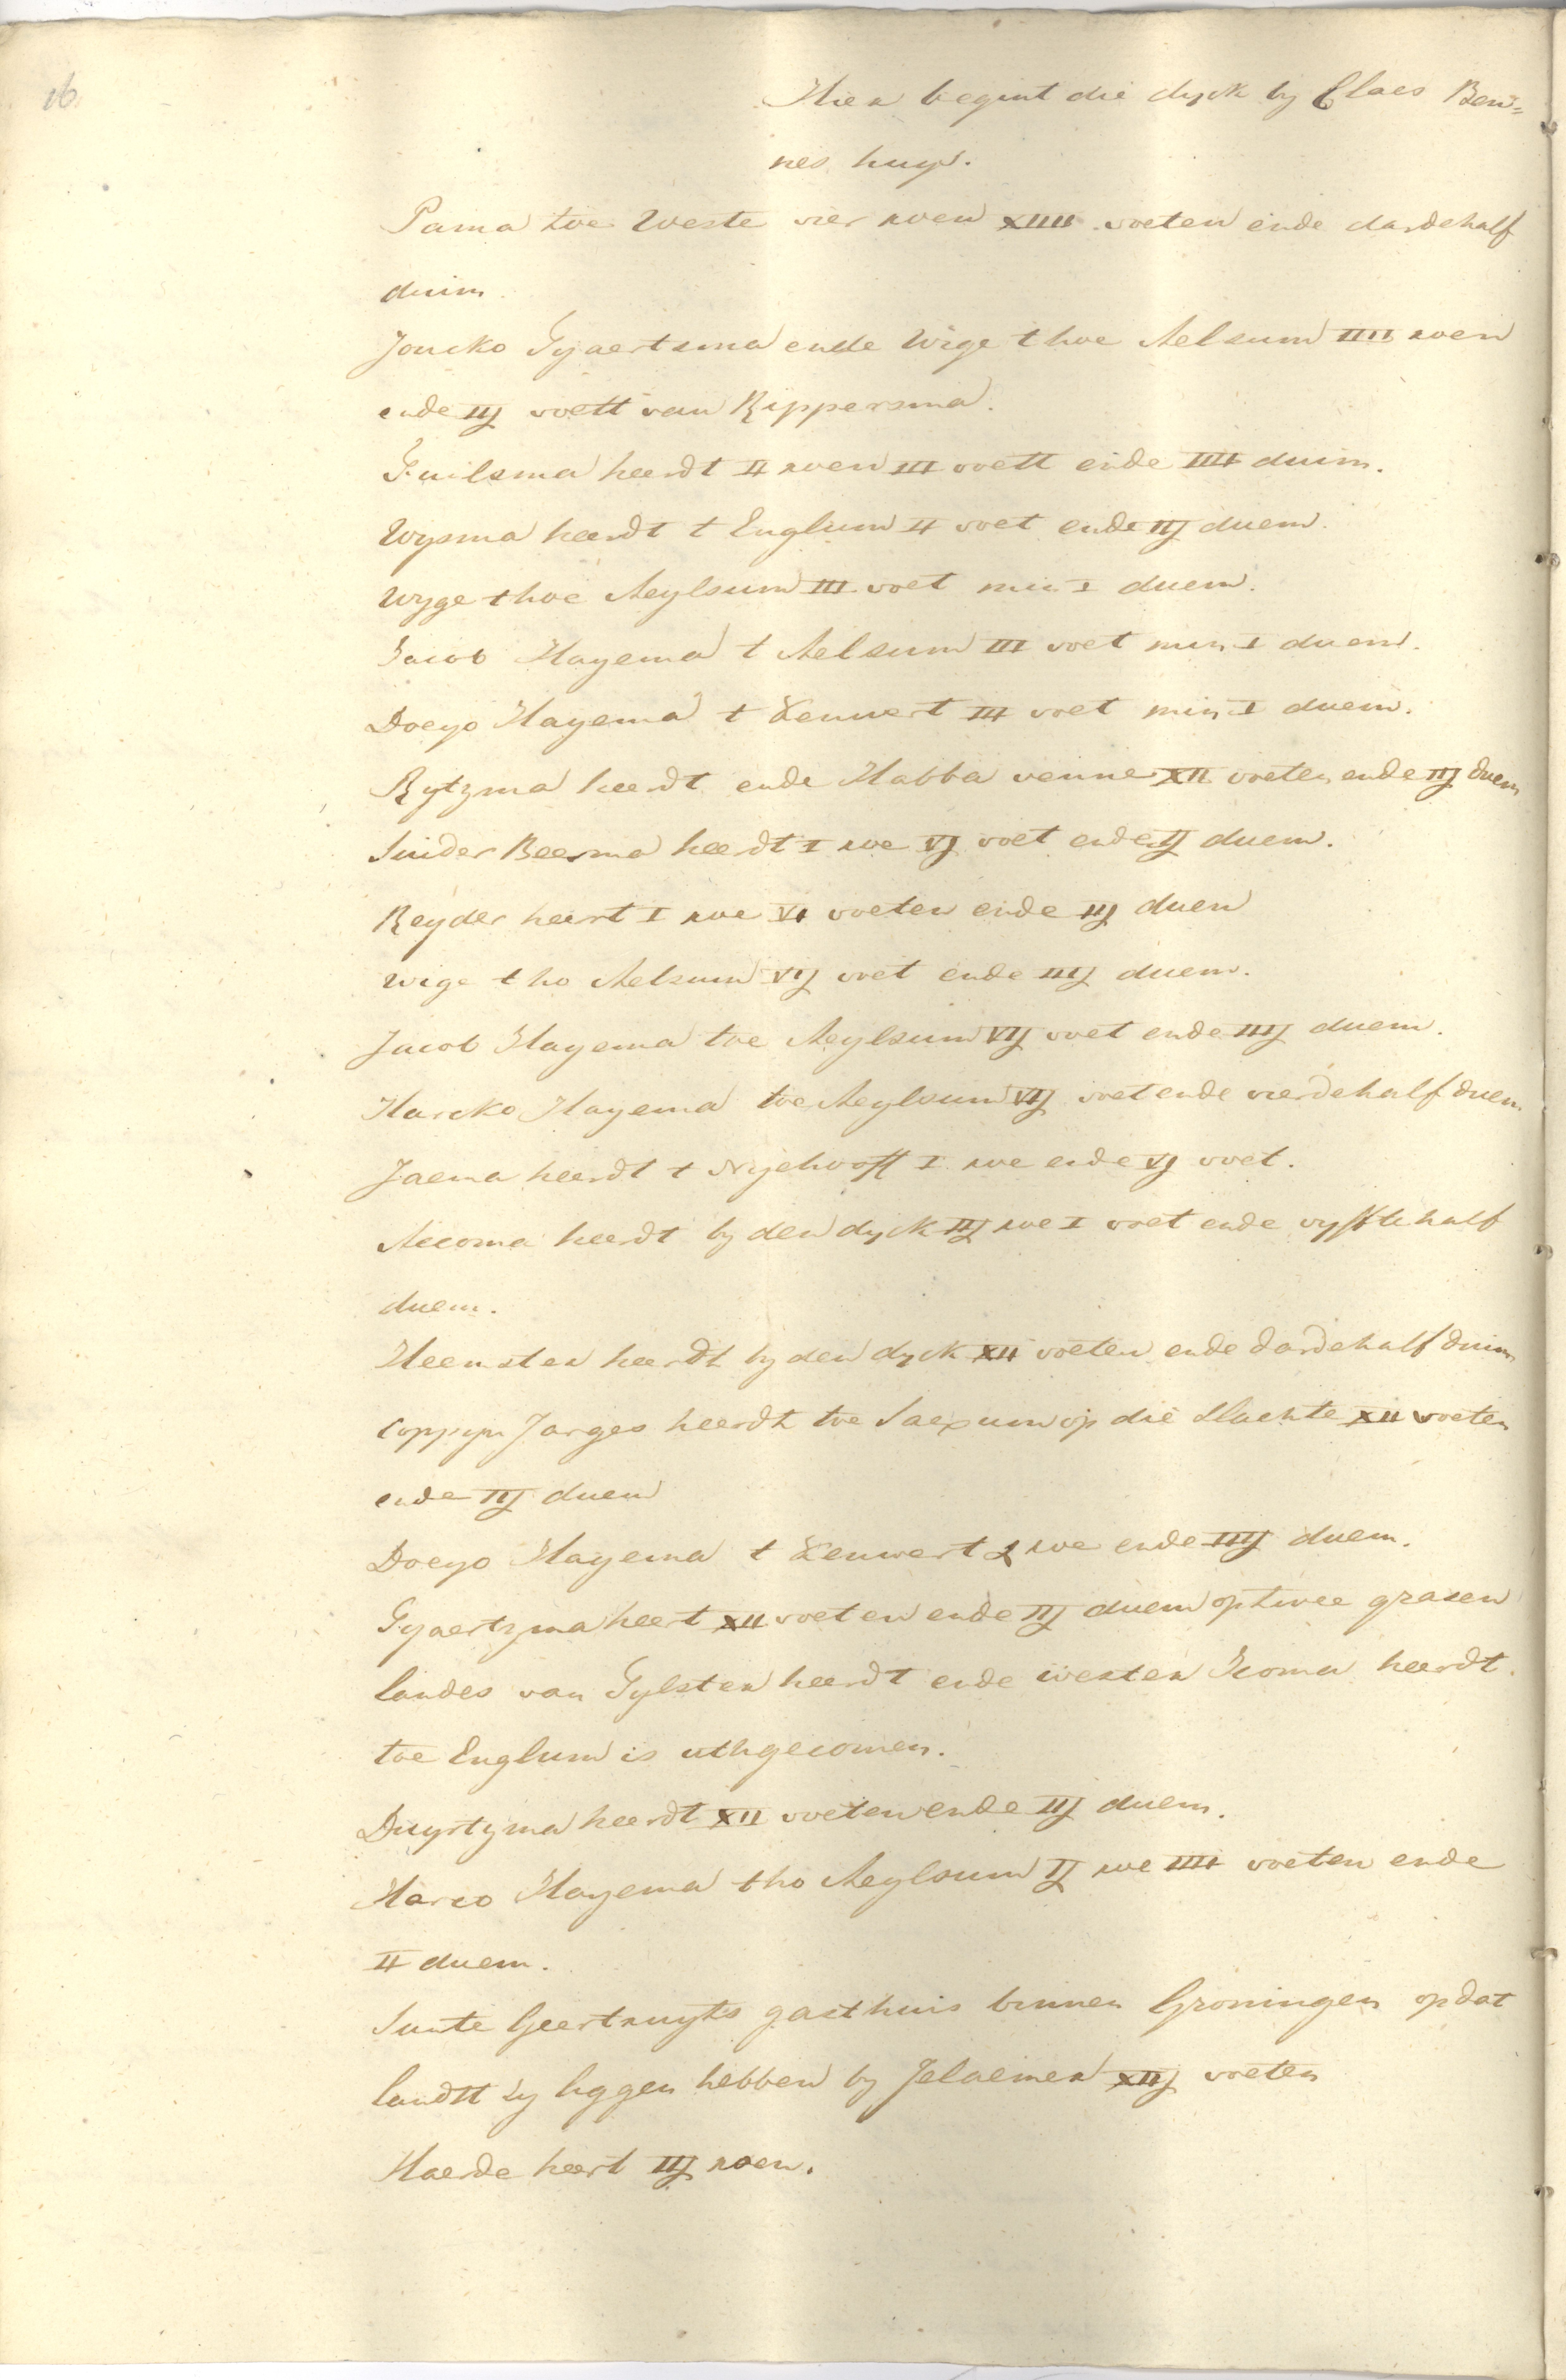 16
Hier begint die dyck by Claes Ben=
nes huys.
Pama toe Weste vier roen XIIII voeten ende dardehalf
duim
Joncko Gyaertsma ende Wige thoe Aelsum IIII roen
ende IIJ voett van Rippersma.
Fuilsma heerdt II roen III voett ende IIII duim.
Wysma heerdt t Englum II voet ende IIJ duem.
Wyge thoe Aeylsum III voet min I duem.
Jacob Hayema t Aelsum III voet min I duem.
Doeyo Hayema t Xenwert III voet min I duem.
Rytzma heerdt ende Habba venne XII voeten ende IIJ duem
Suider Beerma heerdt I roe VJ voet ende IJ duem.
Reyder heert I roe VI voeten ende IIJ duem
Wige tho Aelsum VIJ voet ende IIIJ duem.
Jacob Hayema toe Aeylsum VIJ voet ende IIIJ duem.
Harcko Hayema toe Aeylsum VIJ voet ende vierdehalf duem
Jaema heerdt t Nyehooff I roe ende VJ voet.
Aecoma heerdt by den dyck IIJ roe I voet ende vyfftehalf
duem.
Heemster heerdt by den dyck XII voeten ende dardehalf duim
Coppyn Jarges heerdt toe Saexum op die Slachte XII voeten
ende IIJ duem
Doeyo Hayema t Xenwert roe ende IIIJ duem.
Gyaertzma heert XII voeten ende IIJ duem op twee grasen
landes van Gylster heerdt ende wester Icoma heerdt
toe Englum is uthgecomen.
Duyrtyma heerdt XII voeten ende IIJ duem.
Harco Hayema tho Aeylsum IJ roe IIII voeten ende
II duem.
Sunte Geertruyts gasthuis binnen Groningen op dat
landtt sy liggen hebben by Jelaemer XIIJ voeten
Haerde heert IIJ roen.